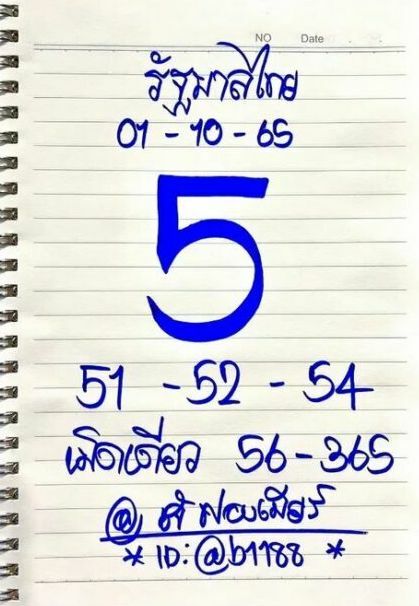 NO Date
รัฐบาลไทย
01 - 10 - 65
5
51 - 52 - 54
เม็ดเดียว 56 - 365
* ID: @b1188 *